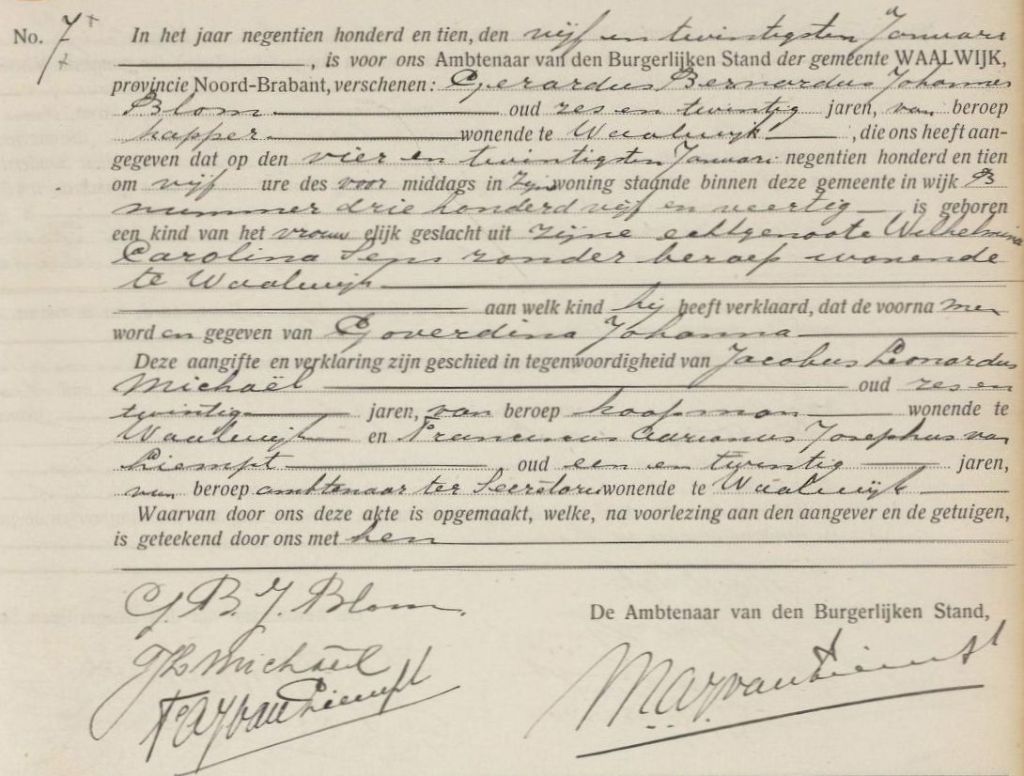 No. 7
In het jaar negentien honderd en tien, den vijf en twintigsten Januari
, is voor ons Ambtenaar van den Burgerlijken Stand der gemeente WAALWIJK,
provincie Noord-Brabant, verschenen: Gerardus Bernardus Johannes
Blom oud zes en twintig jaren, van beroep
kapper wonende te Waalwijk , die ons heeft aan-
gegeven dat op den vier en twintigsten Januari negentien honderd en tien
om vijf ure des voor middags in zijn woning staande binnen deze gemeente in wijk B
nummer drie honderd vijf en veertig is geboren
een kind van het vrouw elijk geslacht uit zijne echtgenoote Wilhelmina
Carolina Sens zonder beroep wonende
te Waalwijk
aan welk kind hij heeft verklaard, dat de voorna men
word en gegeven van Goverdina Johanna
Deze aangifte en verklaring zijn geschied in tegenwoordigheid van Jacobus Leonardus
Michaël oud zes en
twintig jaren, van beroep koopman wonende te
Waalwijk en Franciscus Adrianus Josephus van
Liempt oud een en twintig jaren,
van beroep ambtenaar ter Secretarie wonende te Waalwijk
Waarvan door ons deze akte is opgemaakt, welke, na voorlezing aan den aangever en de getuigen,
is geteekend door ons met hen
G. B. J. Blom.
De Ambtenaar van den Burgerlijken Stand,
JL Michaël
F A J van Liempt
M A J van Liempt